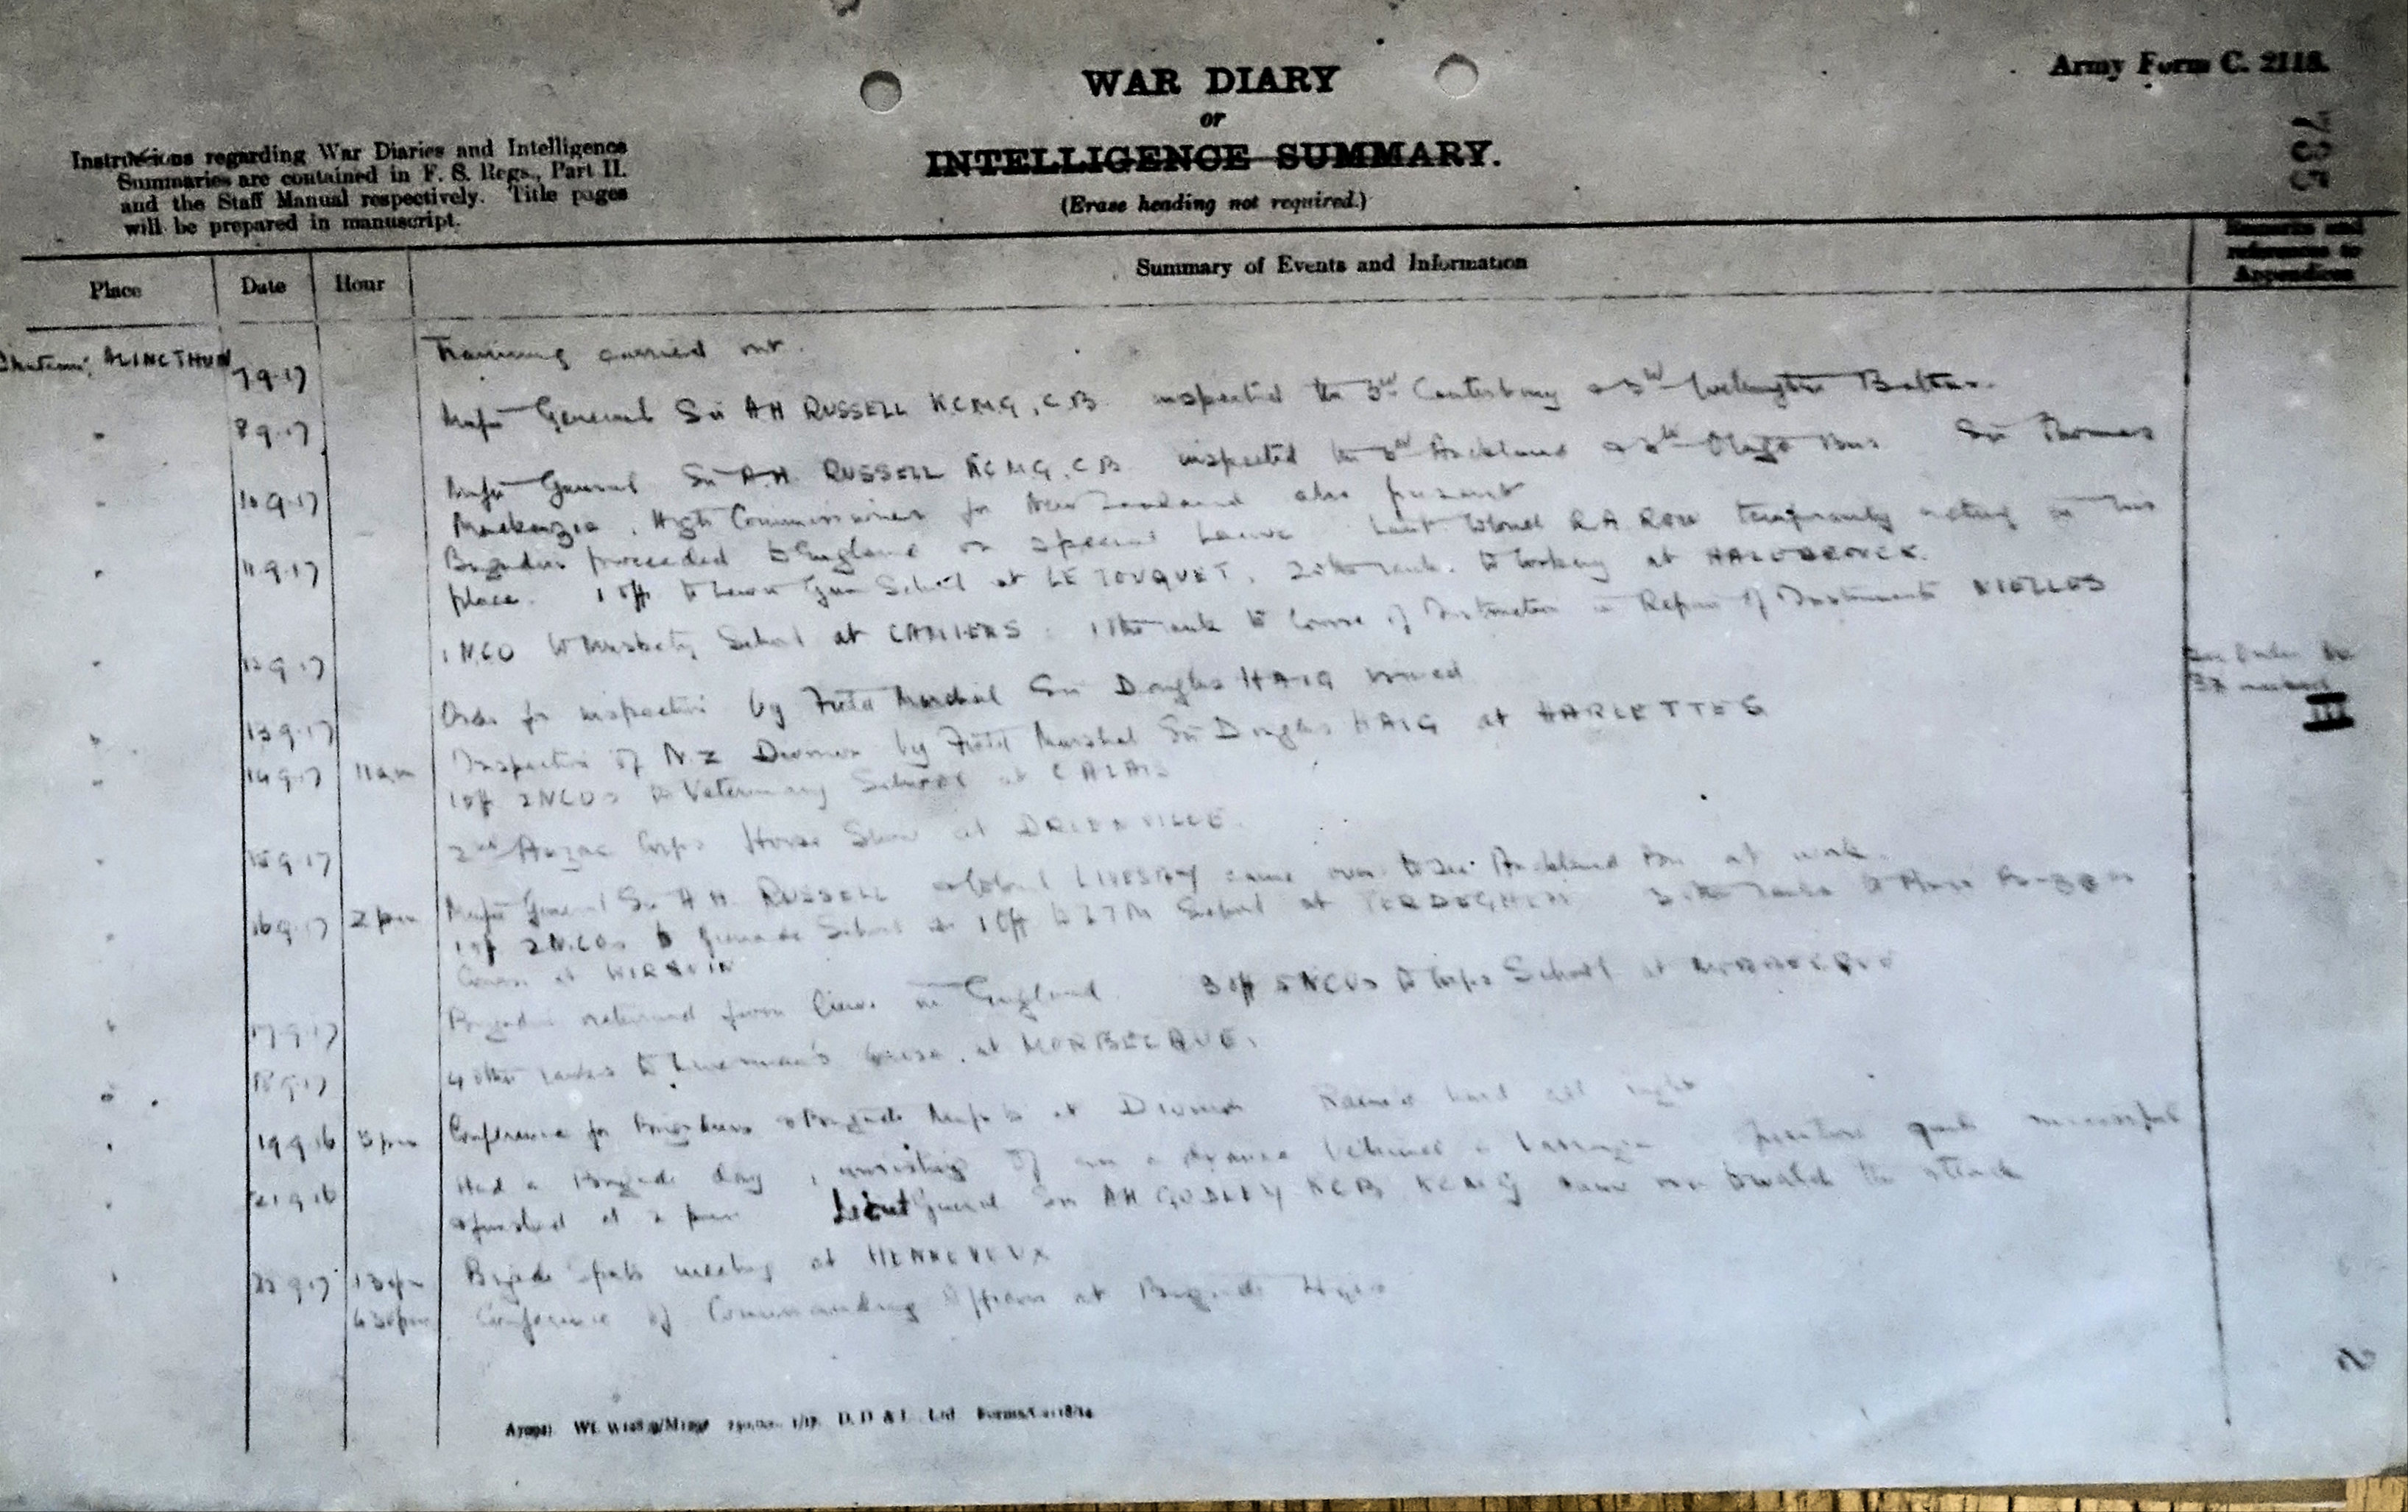 WAR DIARY
or
INTELLIGENCE SUMMARY.
(Erase heading not required.)
Army Form C. 2118.
Instructions regarding War Diaries and Intelligence
Summaries are contained in F. S. Regs., Part II.
and the Staff Manual respectively. Title pages
will be prepared in manuscript.
Place Date Hour Summary of Events and Information
Remarks and
references to
Appendices
ALINCTHUN 7.9.17 Training carried out.
8.9.17 Major General Sir AH RUSSELL K.C.M.G, C.B. inspected the 3rd Canterbury & 3rd Wellington Battns.
10.9.17 Major General Sir A.H. RUSSELL K.C.M.G, C.B. inspected the 3rd Auckland & 3rd Otago Bns. Sir Thomas
Mackenzie, High Commissioner for New Zealand also present
11.9.17 Brigadier proceeded to England on special leave. Lieut. Colonel R.A. ROW temporarily acting in his
place. 1 off to Lewis Gun School at LE TOUQUET. 2 other rank. to cookery at
12.9.17 1 NCO to Musketry School at CAMIERS. 1 other rank to Course of Instruction in Repair of Instruments NIELLES
13.9.17 Order for inspection by Field Marshal Sir Douglas HAIG issued
III
14.9.17 11 am Inspection of N.Z Division by Field Marshal Sir Douglas HAIG at HARLETTES
1 off 2 NCOs to Veterinary School at CALAIS
15.9.17 2nd Anzac Corps Horse Show at
16.9.17 2 pm Major General Sir A H. RUSSELL & Colonel LIVESAY came over to see Auckland Bn at work.
1 off 2 N.COs to Grenade School & 1 Off to LTM School at TERDEGHEM 2 other ranks to
Course at WIRQUIN
17.9.17 Brigadier returned from leave in England 3 off 5 NCOs to Corps School at
18.9.17 4 other ranks to Linesman's Course, at MORBECQUE.
19.9.16 3 pm Conference for Brigadiers & Brigade Majors at Division Rained hard all night
21.9.16 Had a Brigade day, consisting of an advance between quite successful
& finished at 2 pm Lieut General Sir AH GODLEY KCB KCMG came over to watch the attack
22.9.17 1 30 pm Brigade Sports meeting at HENNEVEUX
4 30 pm Conference of Commanding Officers at Brigade Hqrs